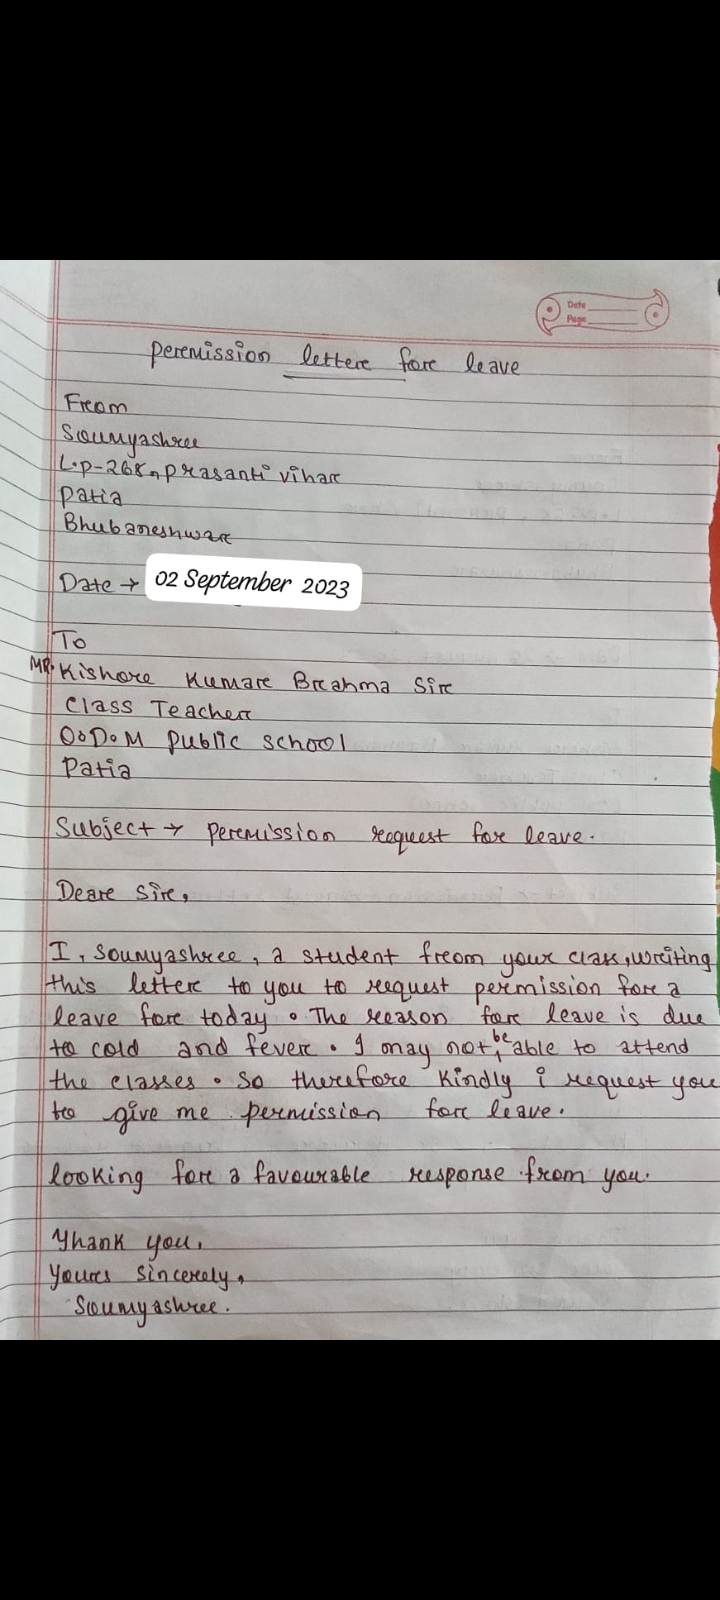 Date
Page
Permission letter for leave
From
Soumyashree
L.p-268, prasanti vihar
Patia
Bhubaneshwar
Date → 02 September 2023
To
MR. Kishore Kumar Brahma Sir
Class Teacher
O.D.M public school
Patia
Subject → permission request for leave.
Dear Sir,
I, Soumyashree, a student from your class, writing
this letter to you to request permission for a
leave for today. The reason for leave is due
to cold and fever. I may not be able to attend
the classes. So therefore kindly i request you
to give me permission for leave.
looking for a favourable response from you.
Thank you,
Yours sincerely,
Soumyashree.